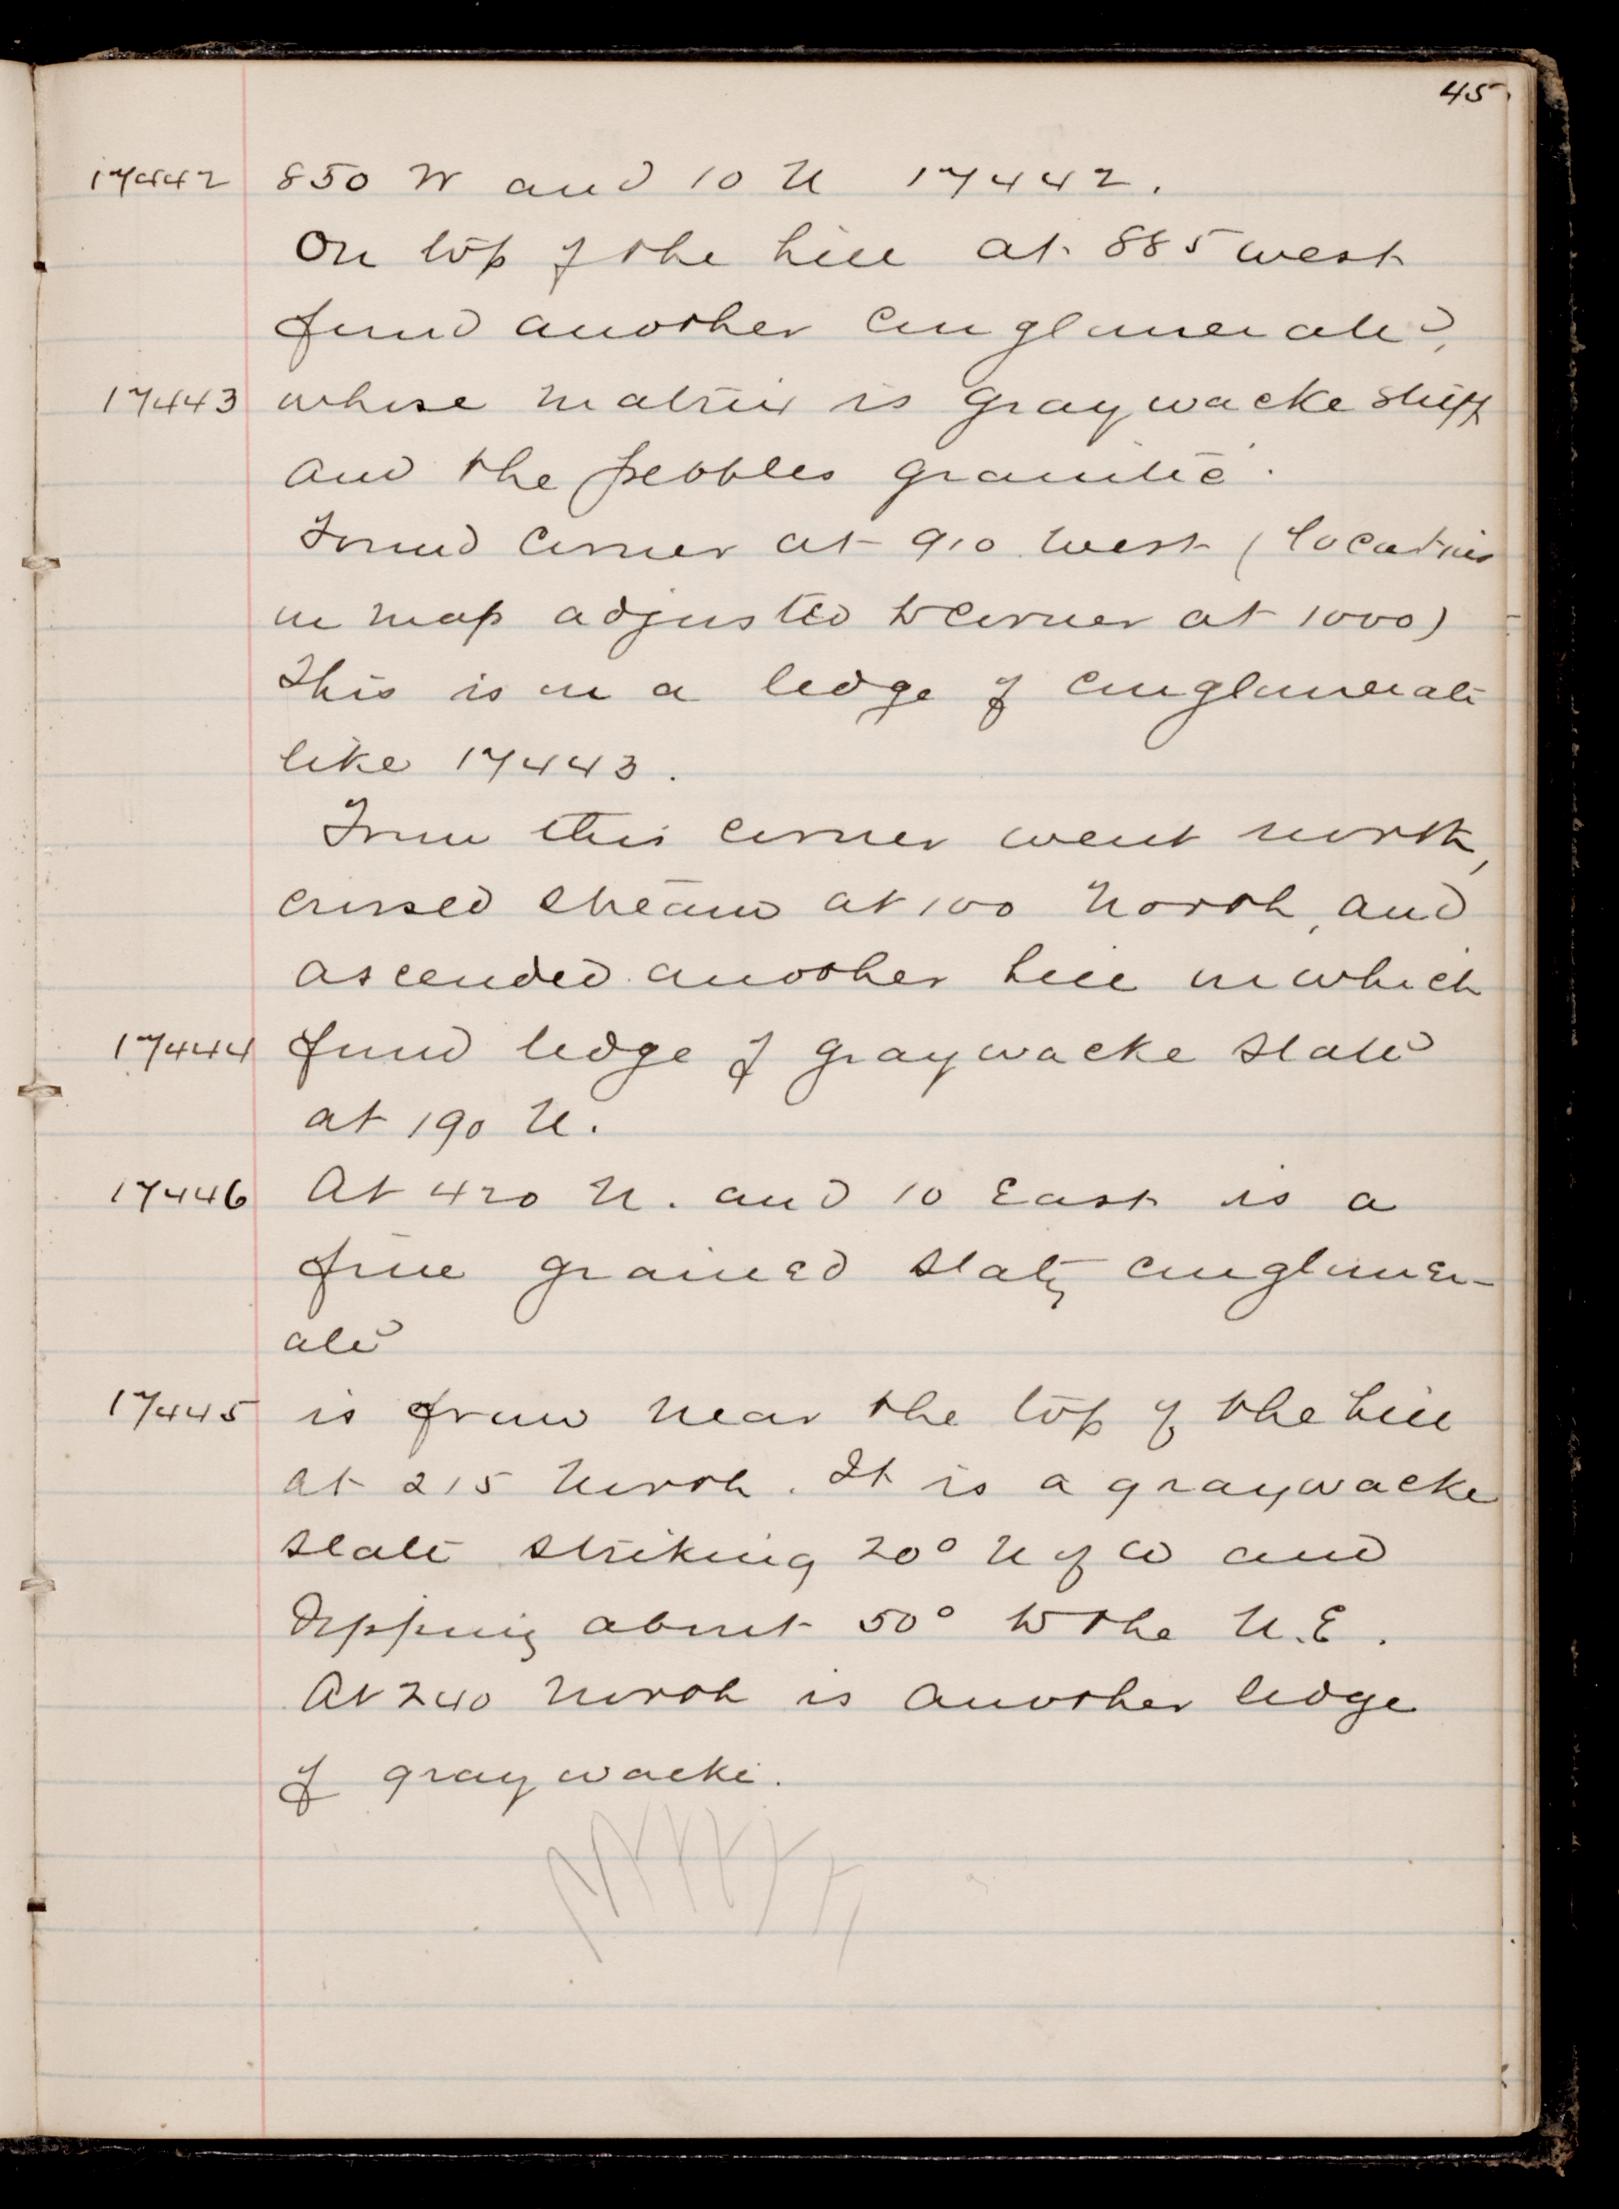 45
17442 850 W and 10 N 17442.
On top of the hill at 885 west
found another conglomerate,
17443 whose matrix is graywacke stuff
and the pebbles granitic.
Found corner at 910 West (location
on map adjusted to corner at 1000)
This is on a ledge of conglomerate
like 17443.
From this corner went north,
crossed stream at 100 North, and
ascended another hill on which
17444 found ledge of graywacke slate
at 190 N.
17446 At 420 N. and 10 East is a
fine grained slaty conglomer-
ate
17445 is from near the top of the hill
at 215 North. It is a graywacke
slate striking 20° N of W and
Dipping about 50° to the N.E.
At 240 North is another ledge
of graywacke.